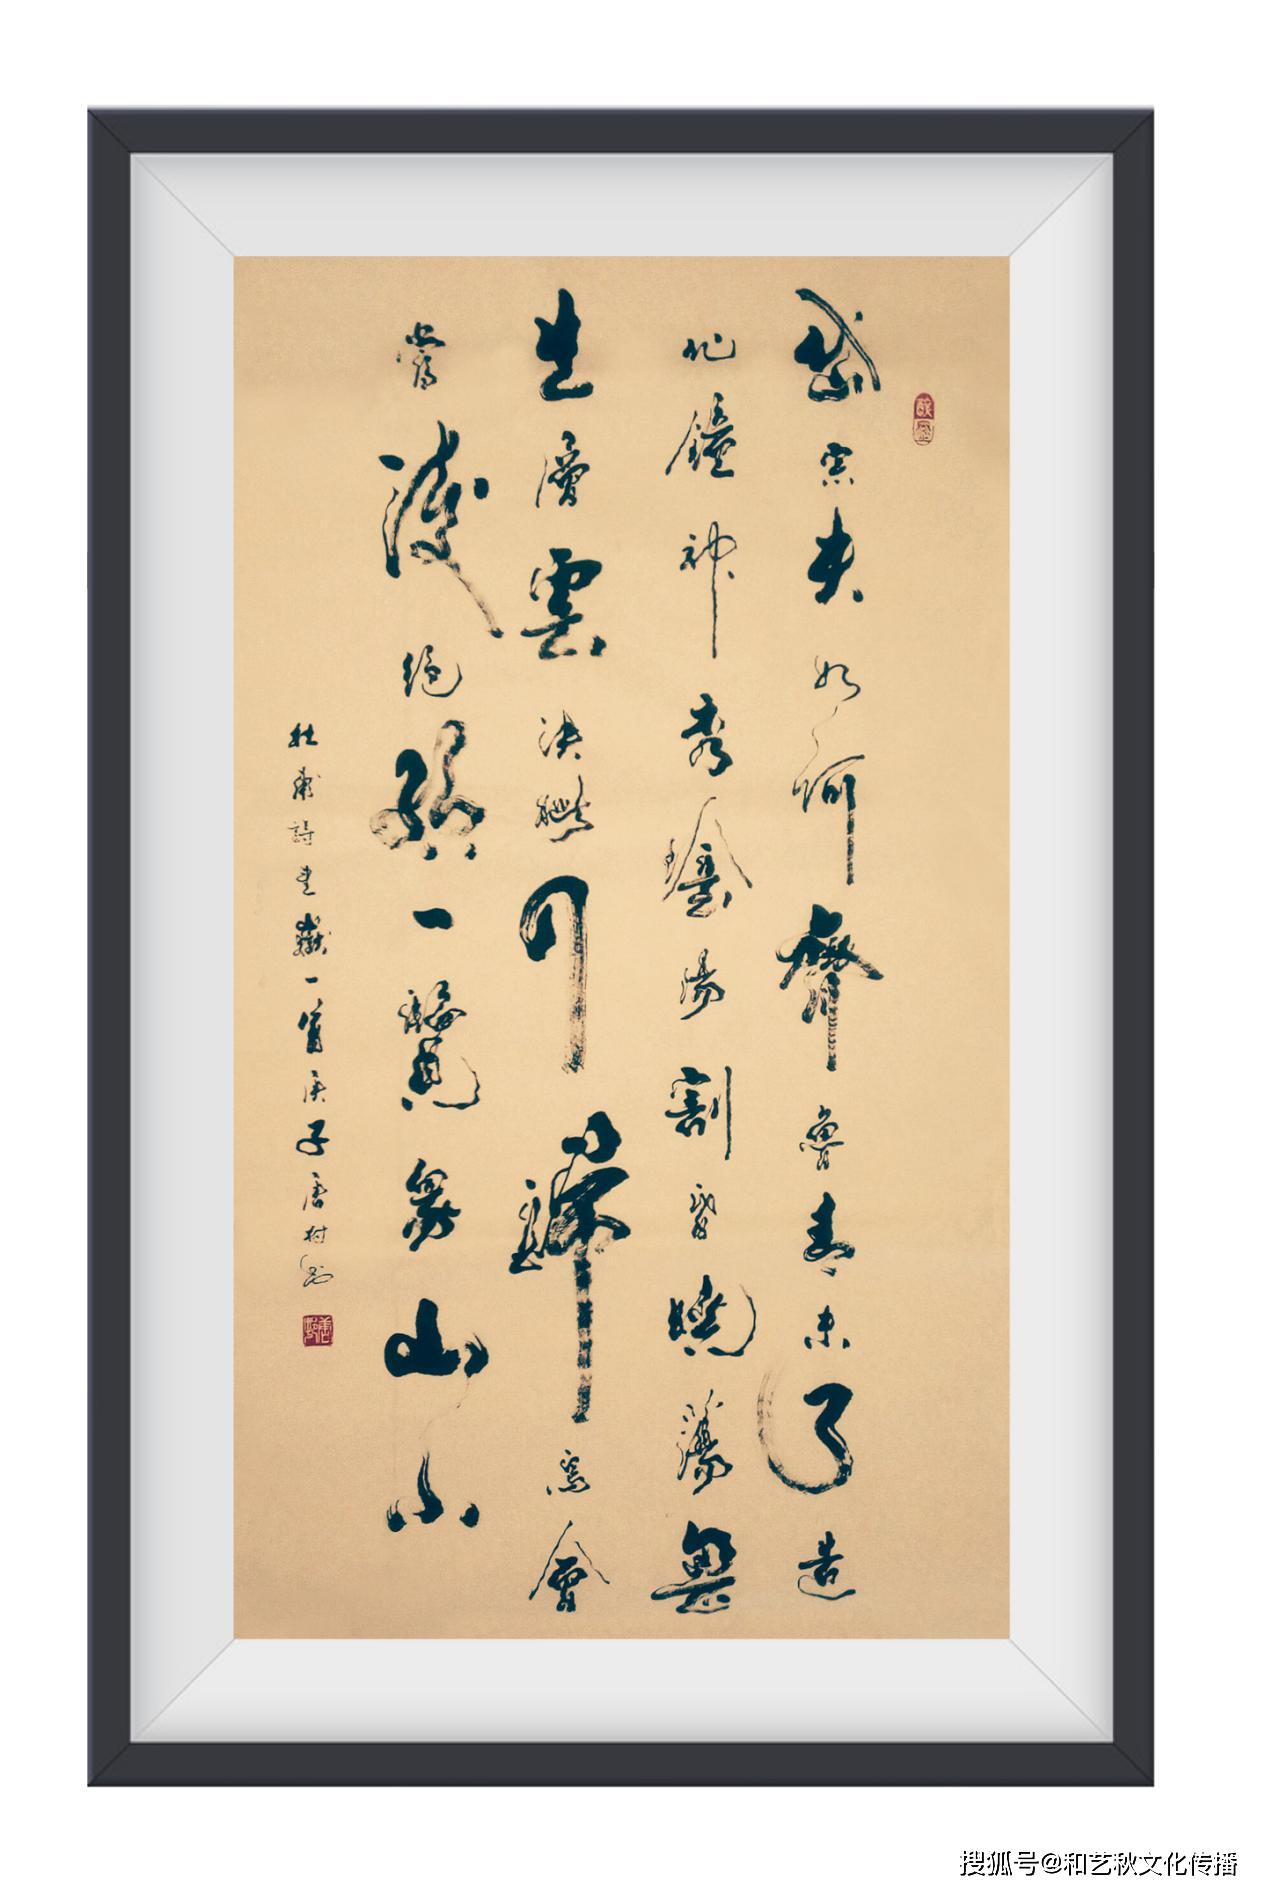 岱宗夫如何齊魯青未了造
化鐘神秀陰陽割昏曉蕩胸
生層雲決眦入歸鳥會
當凌絕頂一覽眾山小
杜甫詩望嶽一首庚子唐
搜狐号@和艺秋文化传播